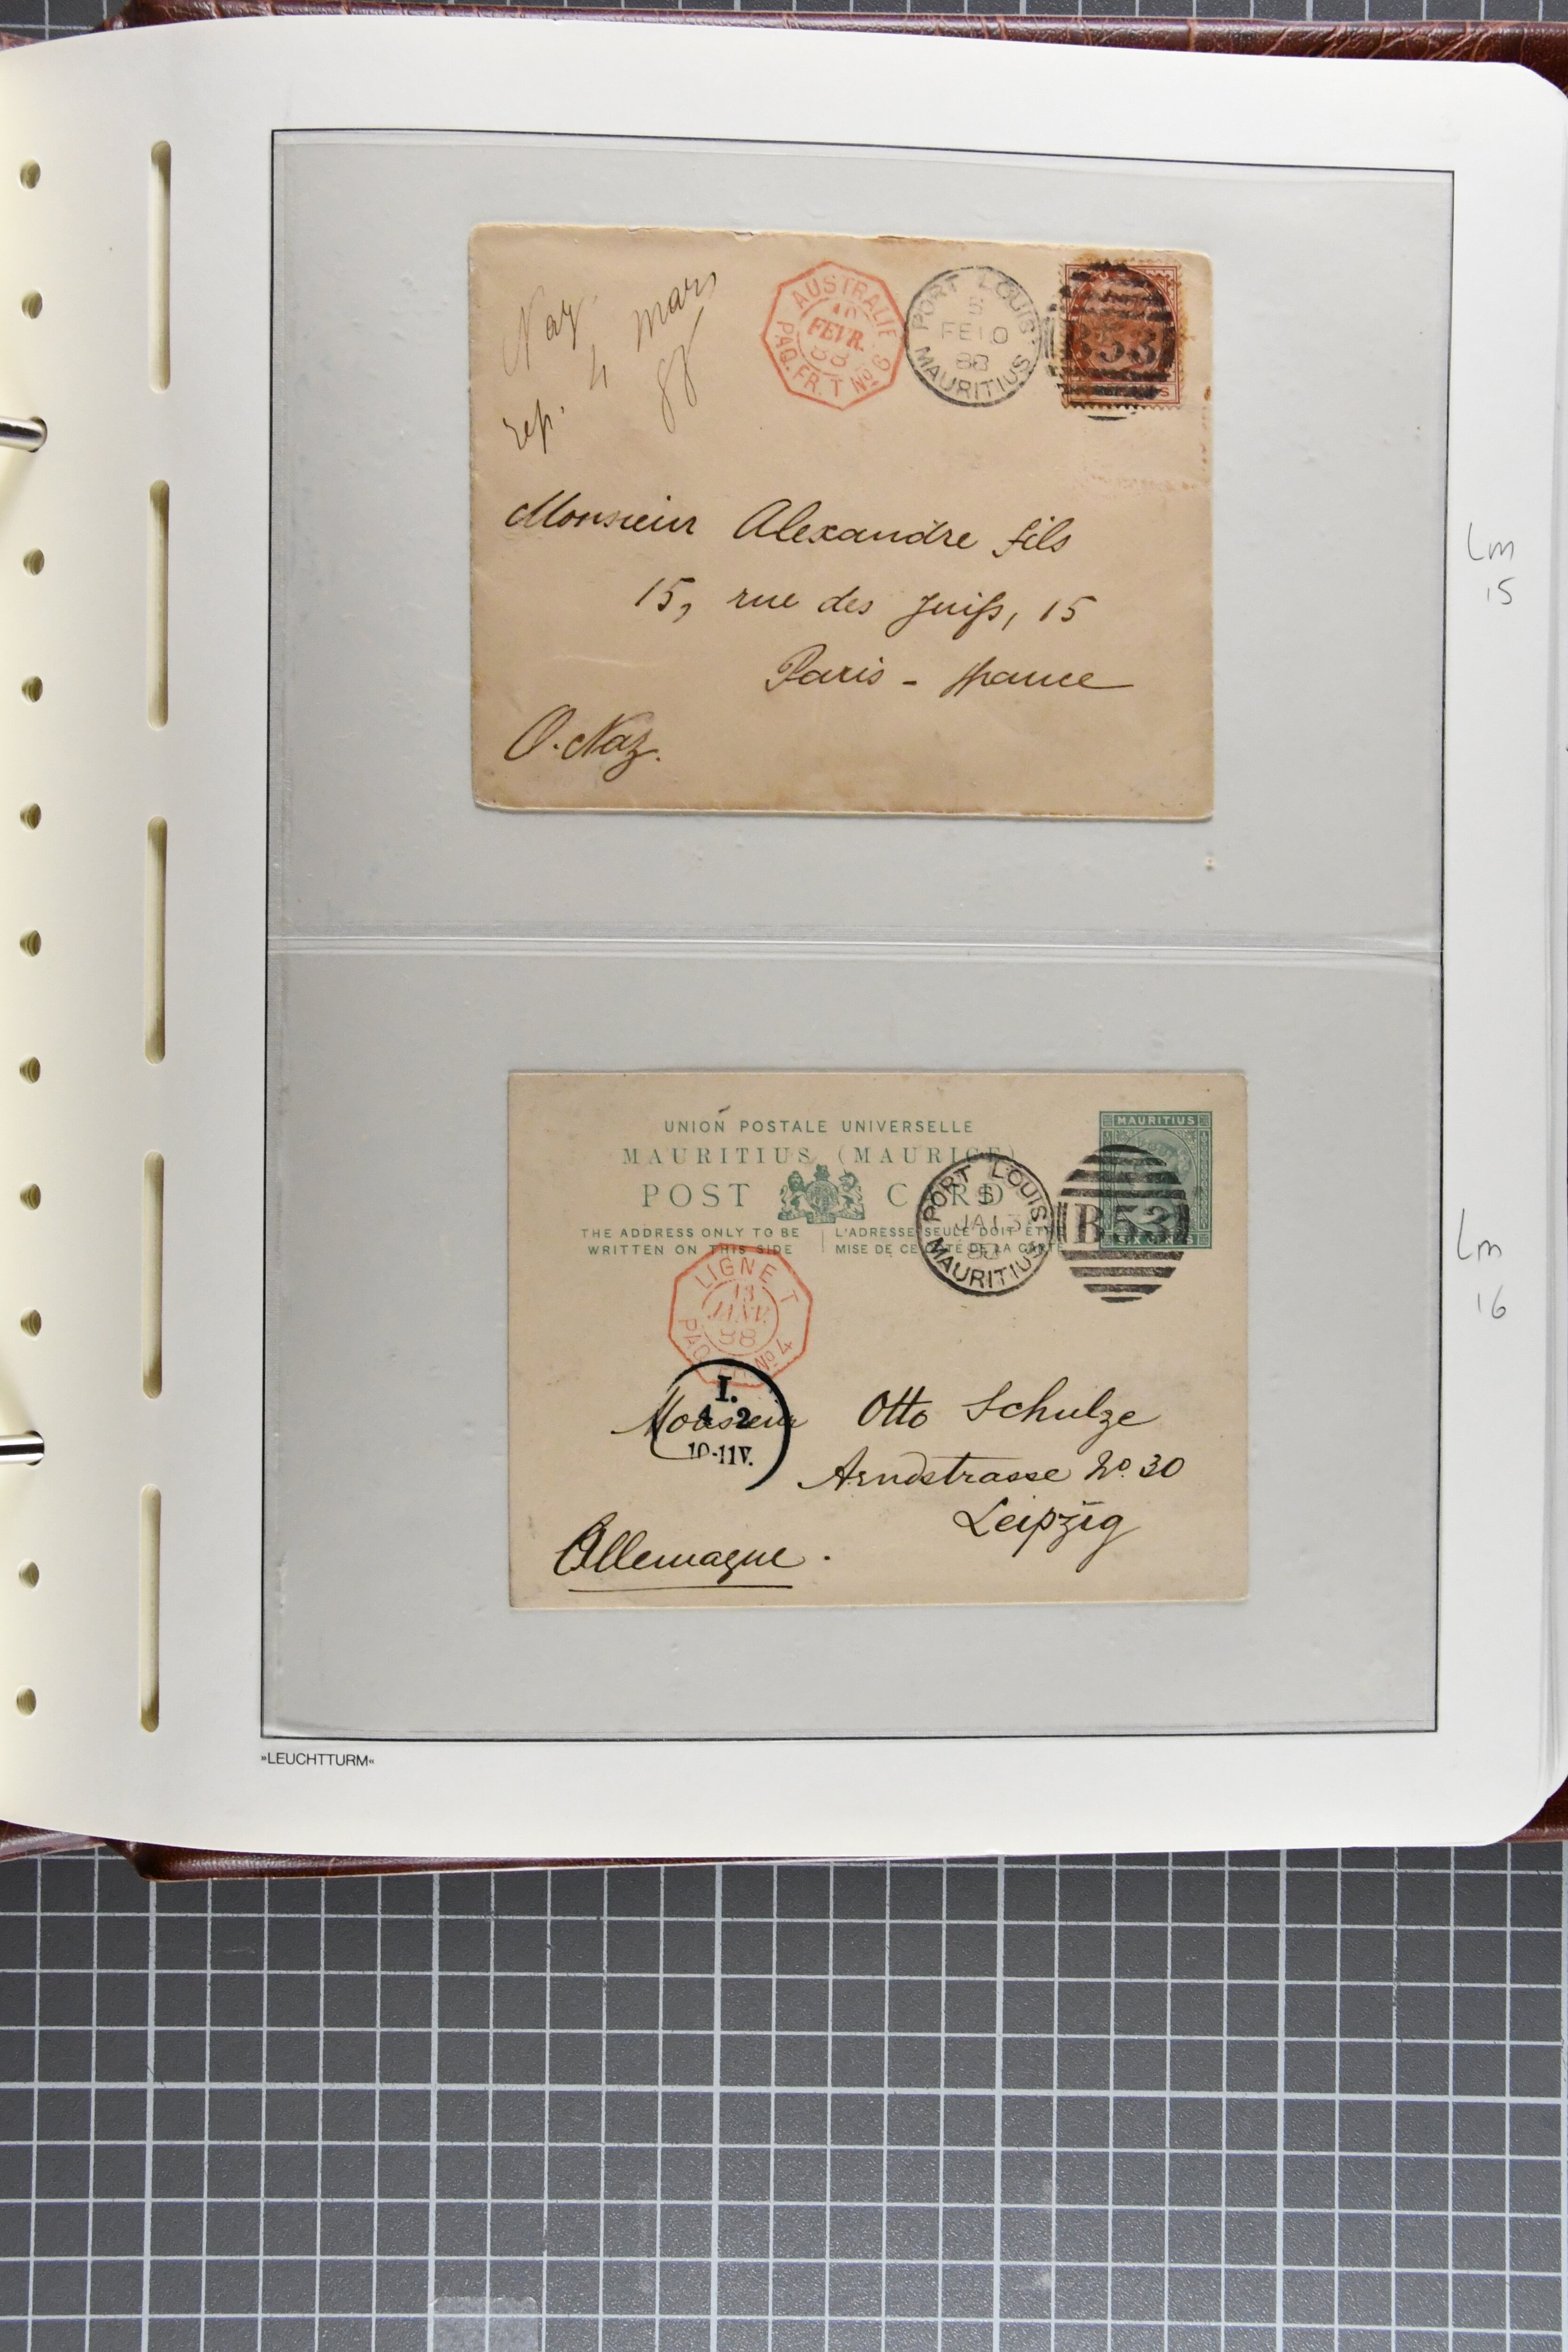 Naz
4 mars
88
rep.
AUSTRALIE
10
FEVR.
88
PAQ. FR. T No 6
PORT LOUIS
S
FE 10
88
MAURITIUS
B53
Monsieur Alexandre fils
15, rue des Juifs, 15
Paris - france
O. Naz.
Lm
15
UNION POSTALE UNIVERSELLE
MAURITIUS (MAURICE)
POST CARD
THE ADDRESS ONLY TO BE
WRITTEN ON THIS SIDE
L'ADRESSE SEULE DOIT ÊTRE
MISE DE CE CÔTÉ DE LA CARTE
MAURITIUS
SIX CENTS
PORT LOUIS
JA 13
88
MAURITIUS
B53
LIGNE T
13
JANV.
88
PAQ. FR. No 4
I.
4 2
10-11V.
Monsieur Otto Schulze
Arndstrasse No. 30
Leipzig
Allemagne.
Lm
16
»LEUCHTTURM«